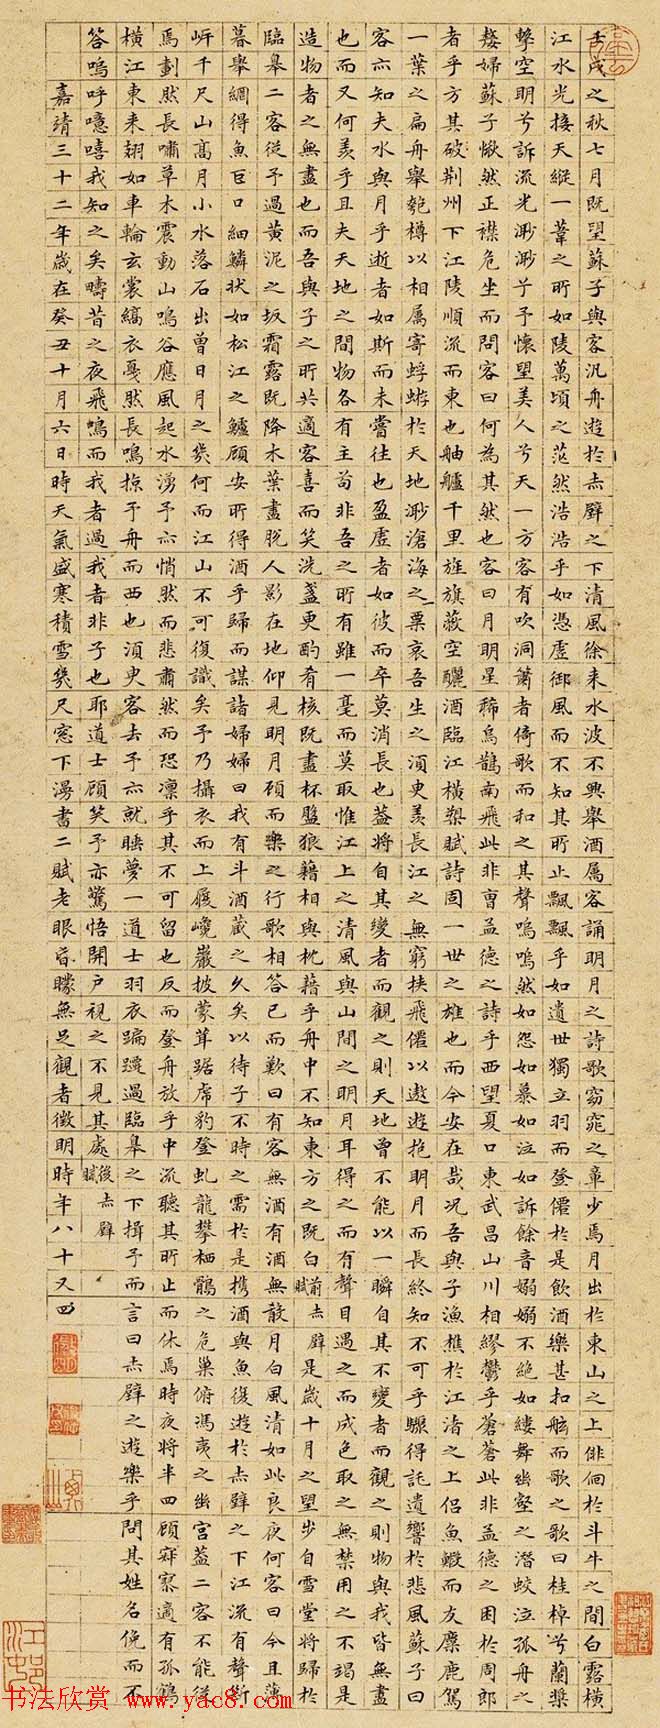 壬戌之秋七月既望蘇子與客汎舟遊於赤壁之下清風徐來水波不興舉酒属客誦明月之詩歌窈窕之章少焉月出於東山之上徘徊於斗牛之間白露橫
江水光接天縱一葦之所如陵萬頃之茫然浩浩乎如憑虛御風而不知其所止飄飄乎如遺世獨立羽而登僊於是飲酒樂甚扣舷而歌之歌曰桂棹兮蘭槳
擊空明兮訴流光渺渺兮予懷望美人兮天一方客有吹洞簫者倚歌而和之其聲嗚嗚然如怨如慕如泣如訴餘音嫋嫋不絕如縷舞幽壑之潛蛟泣孤舟之
嫠婦蘇子愀然正襟危坐而問客曰何為其然也客曰月明星稀烏鵲南飛此非曹孟德之詩乎西望夏口東武昌山川相繆鬱乎蒼蒼此非孟德之困於周郎
者乎方其破荊州下江陵順流而東也舳艫千里旌旗蔽空釃酒臨江橫槊賦詩固一世之雄也而今安在哉况吾與子漁樵於江渚之上侶魚鰕而友麋鹿駕
一葉之扁舟舉匏樽以相属寄蜉蝣於天地渺滄海之一粟哀吾生之須臾羨長江之無窮挾飛僊以遨遊抱明月而長終知不可乎驟得託遺響於悲風蘇子曰
客亦知夫水與月乎逝者如斯而未嘗往也盈虛者如彼而卒莫消長也蓋將自其變者而觀之則天地曾不能以一瞬自其不變者而觀之則物與我皆無盡
也而又何羨乎且夫天地之間物各有主苟非吾之所有雖一毫而莫取惟江上之清風與山間之明月耳得之而有聲目遇之而成色取之無禁用之不竭是
造物者之無盡也而吾與子之所共適客喜而笑洗盞更酌肴核既盡杯盤狼藉相與枕藉乎舟中不知東方之既白前赤壁賦是歲十月之望步自雪堂將歸於
臨皋二客從予過黃泥之坂霜露既降木葉盡脫人影在地仰見明月顧而樂之行歌相答已而歎曰有客無酒有酒無殽月白風清如此良夜何客曰今且薄
暮舉網得魚巨口細鱗狀如松江之鱸顧安所得酒乎歸而謀諸婦婦曰我有斗酒藏之久矣以待子不時之需於是携酒與魚復遊於赤壁之下江流有聲斷
岍千尺山高月小水落石出曾日月之幾何而江山不可復識矣予乃攝衣而上履巉巖披蒙茸踞虎豹登虬龍攀栖鶻之危巢俯馮夷之幽宮蓋二客不能從
焉劃然長嘯草木震動山鳴谷應風起水湧予亦悄然而悲肅然而恐凜乎其不可留也反而登舟放乎中流聽其所止而休焉時夜將半四顧寂寥適有孤鶴
橫江東来翅如車輪玄裳縞衣戞然長鳴掠予舟而西也須臾客去予亦就睡夢一道士羽衣蹁躚過臨皋之下揖予而言曰赤壁之遊樂乎問其姓名俛而不
答嗚呼噫嘻我知之矣疇昔之夜飛鳴而我者過我者非子也耶道士顧笑予亦驚悟開戶視之不見其處後赤壁賦
嘉靖三十二年歲在癸丑十月六日時天氣盛寒積雪幾尺窓下漫書二賦老眼昏矇無足觀者徵明時年八十又四
书法欣赏 www.yac8.com